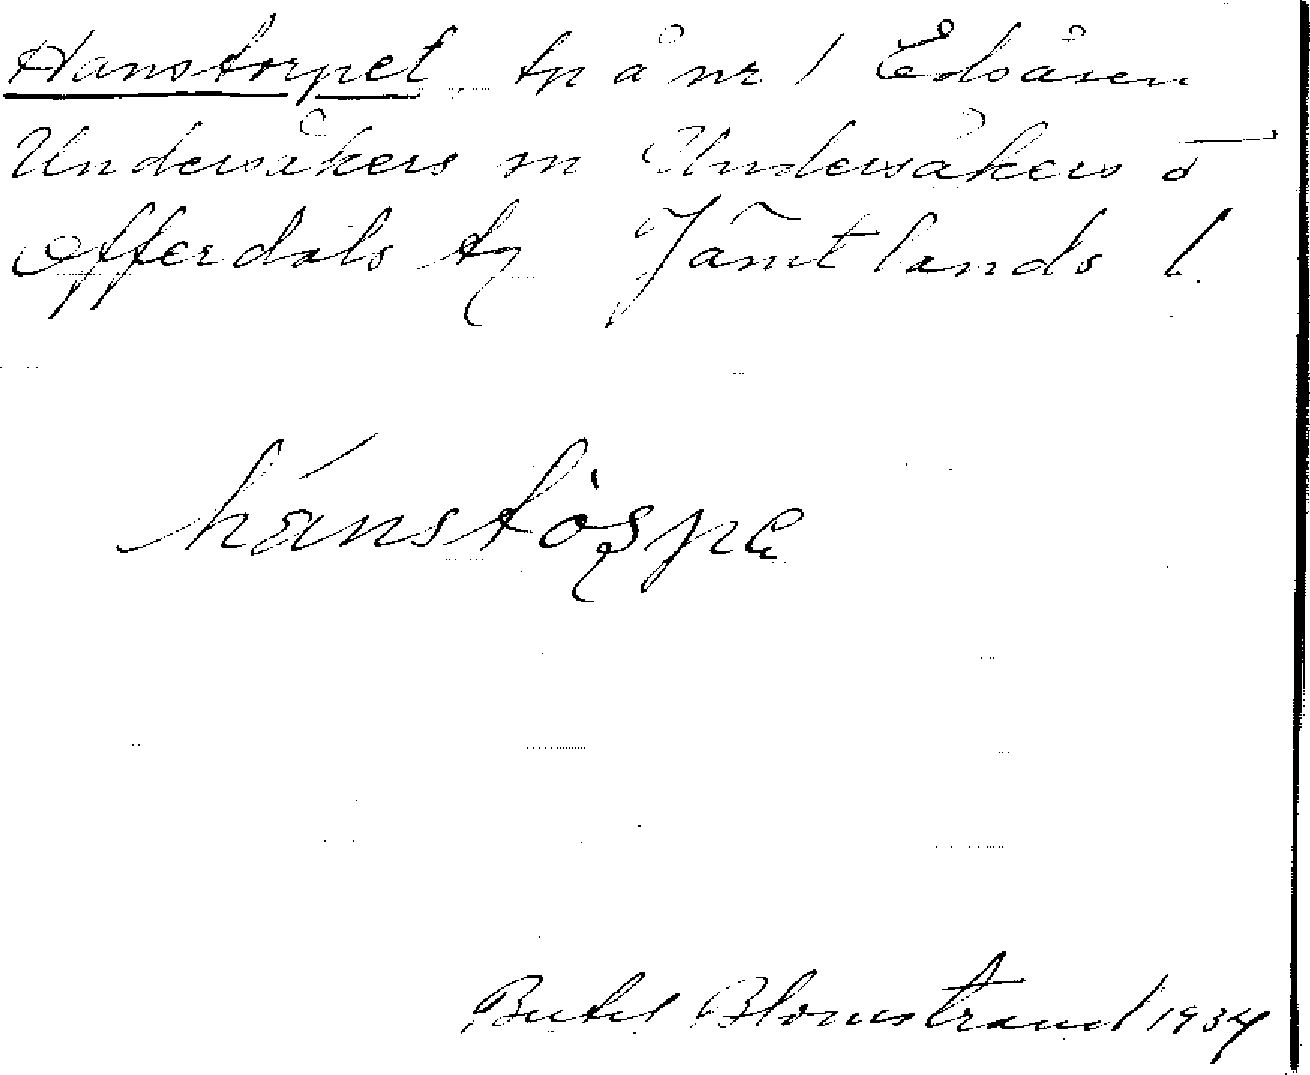 Hanstorpet tp å nr 1 Edsåsen
Undersåkers sn Undersåkers o
Offerdals tg Jämtlands l
hánstòşpę
Bertil Blomstrand 1934